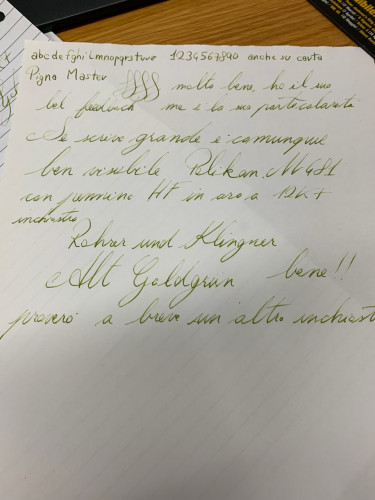 abcdefghilmnopqrstuvz 1234567890 anche su carta
Pigna Master molto bene, ha il suo
bel feedback ma è la sua particolarità
Se scrive grande è comunque
ben visibile Pelikan M481
con pennino HF in oro a 12K+
inchiostro
Rohrer und Klingner
Alt Goldgrün bene!!
proverò a breve un altro inchiost